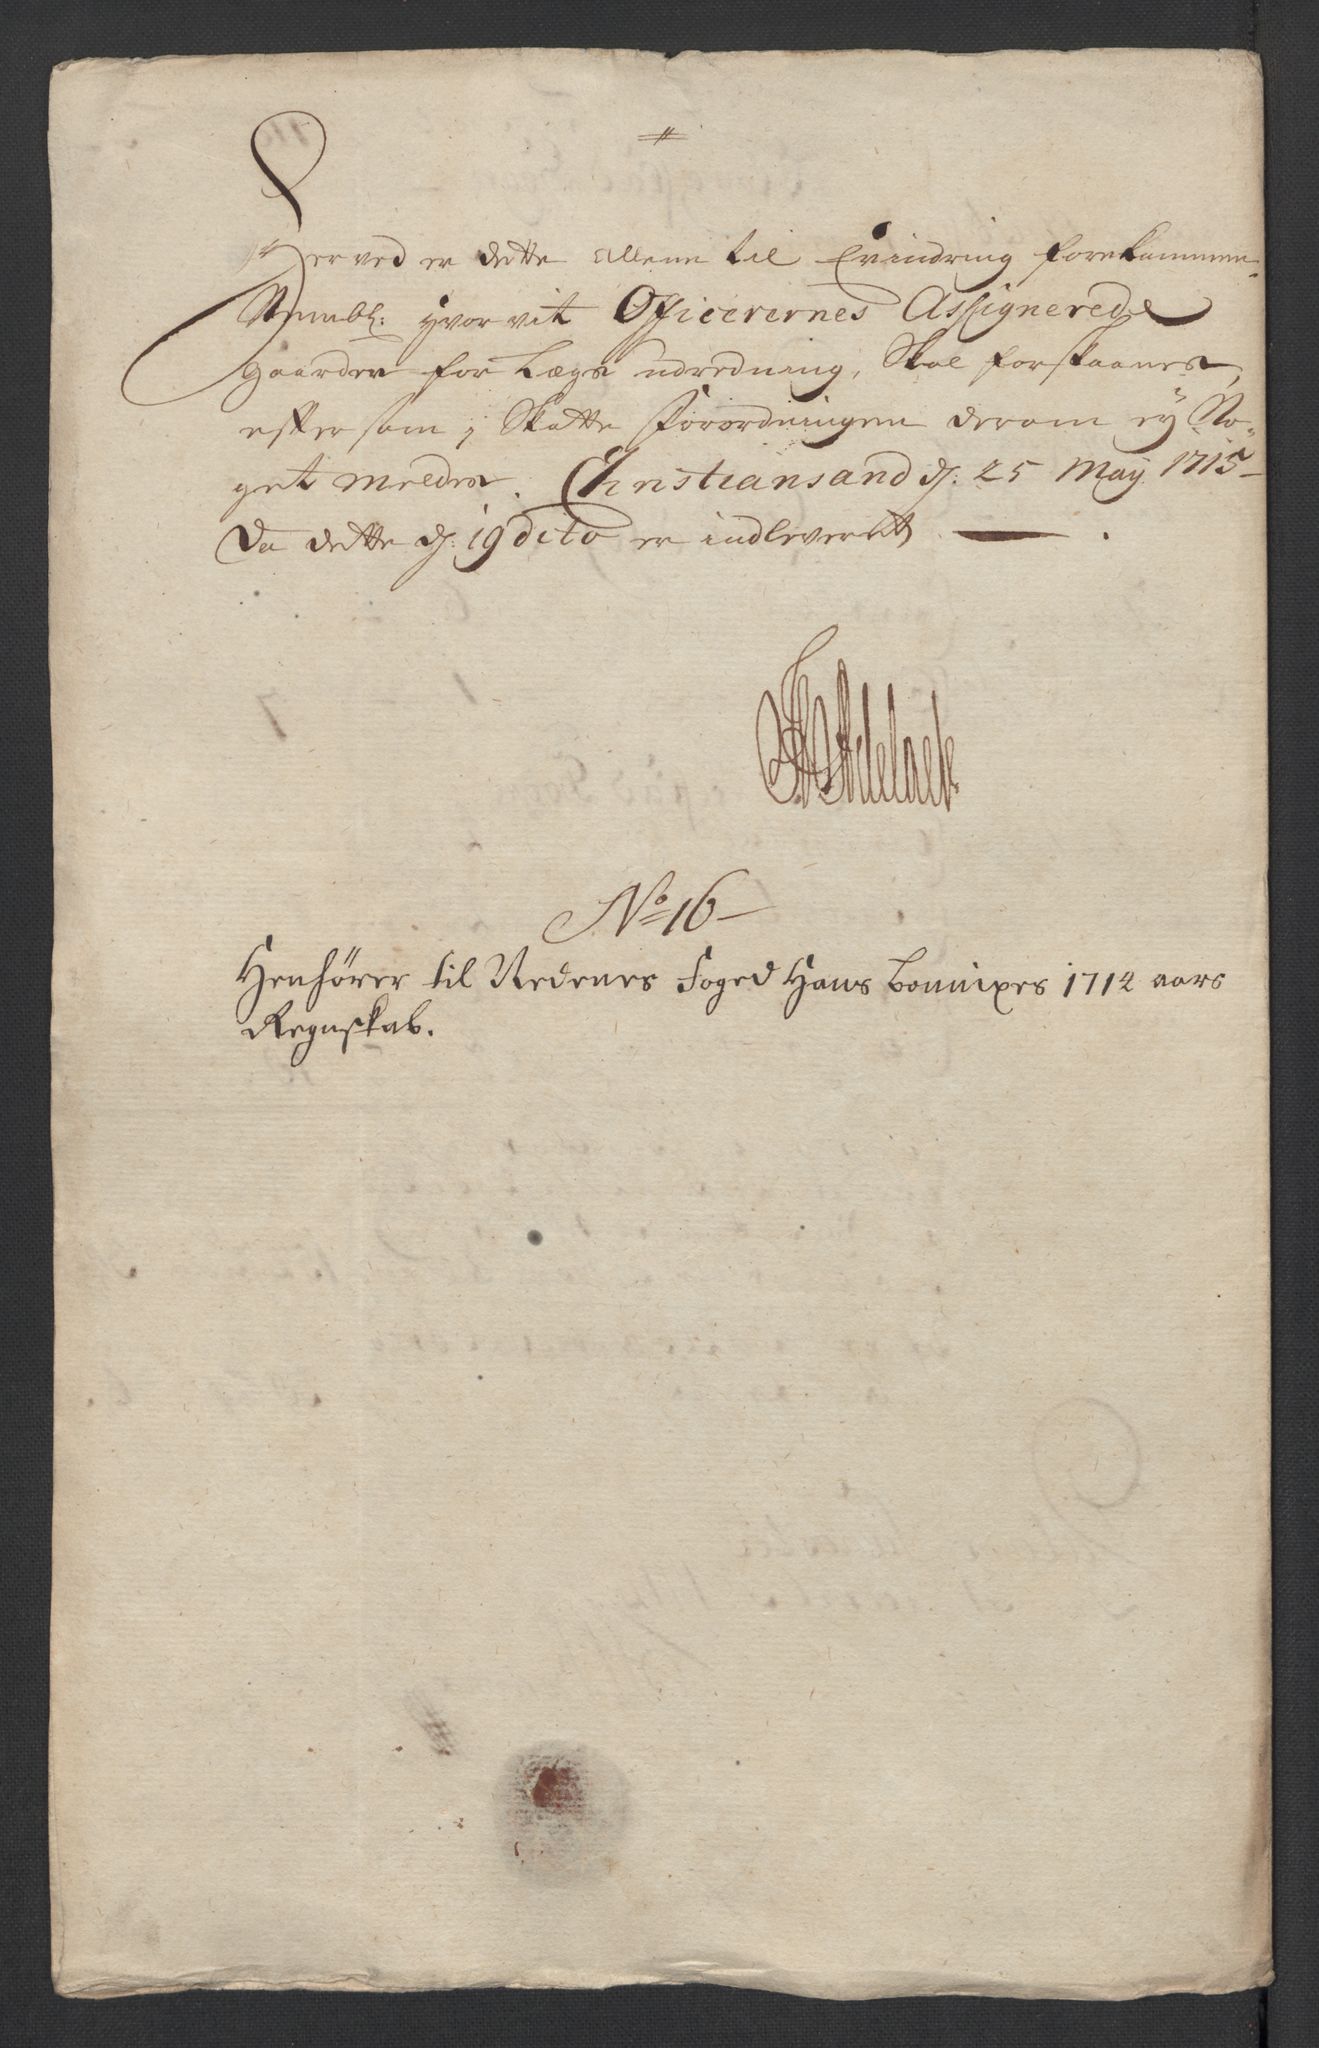 Herved er dette allene til Erindring forekommen
hvorvit Officerernes Assignerede
gaarder for Lægs udredning, Skal forskaanes,
eftersom j Skatte Forordningen derom ey No-
get meldes. Christiansand d. 25 May 1715
Da dette d. 19 dito er indleveret
Adelaer
No 16
Henhører til Nedenes Foged Hans Bonnixes 1714 aars
Regnskab.